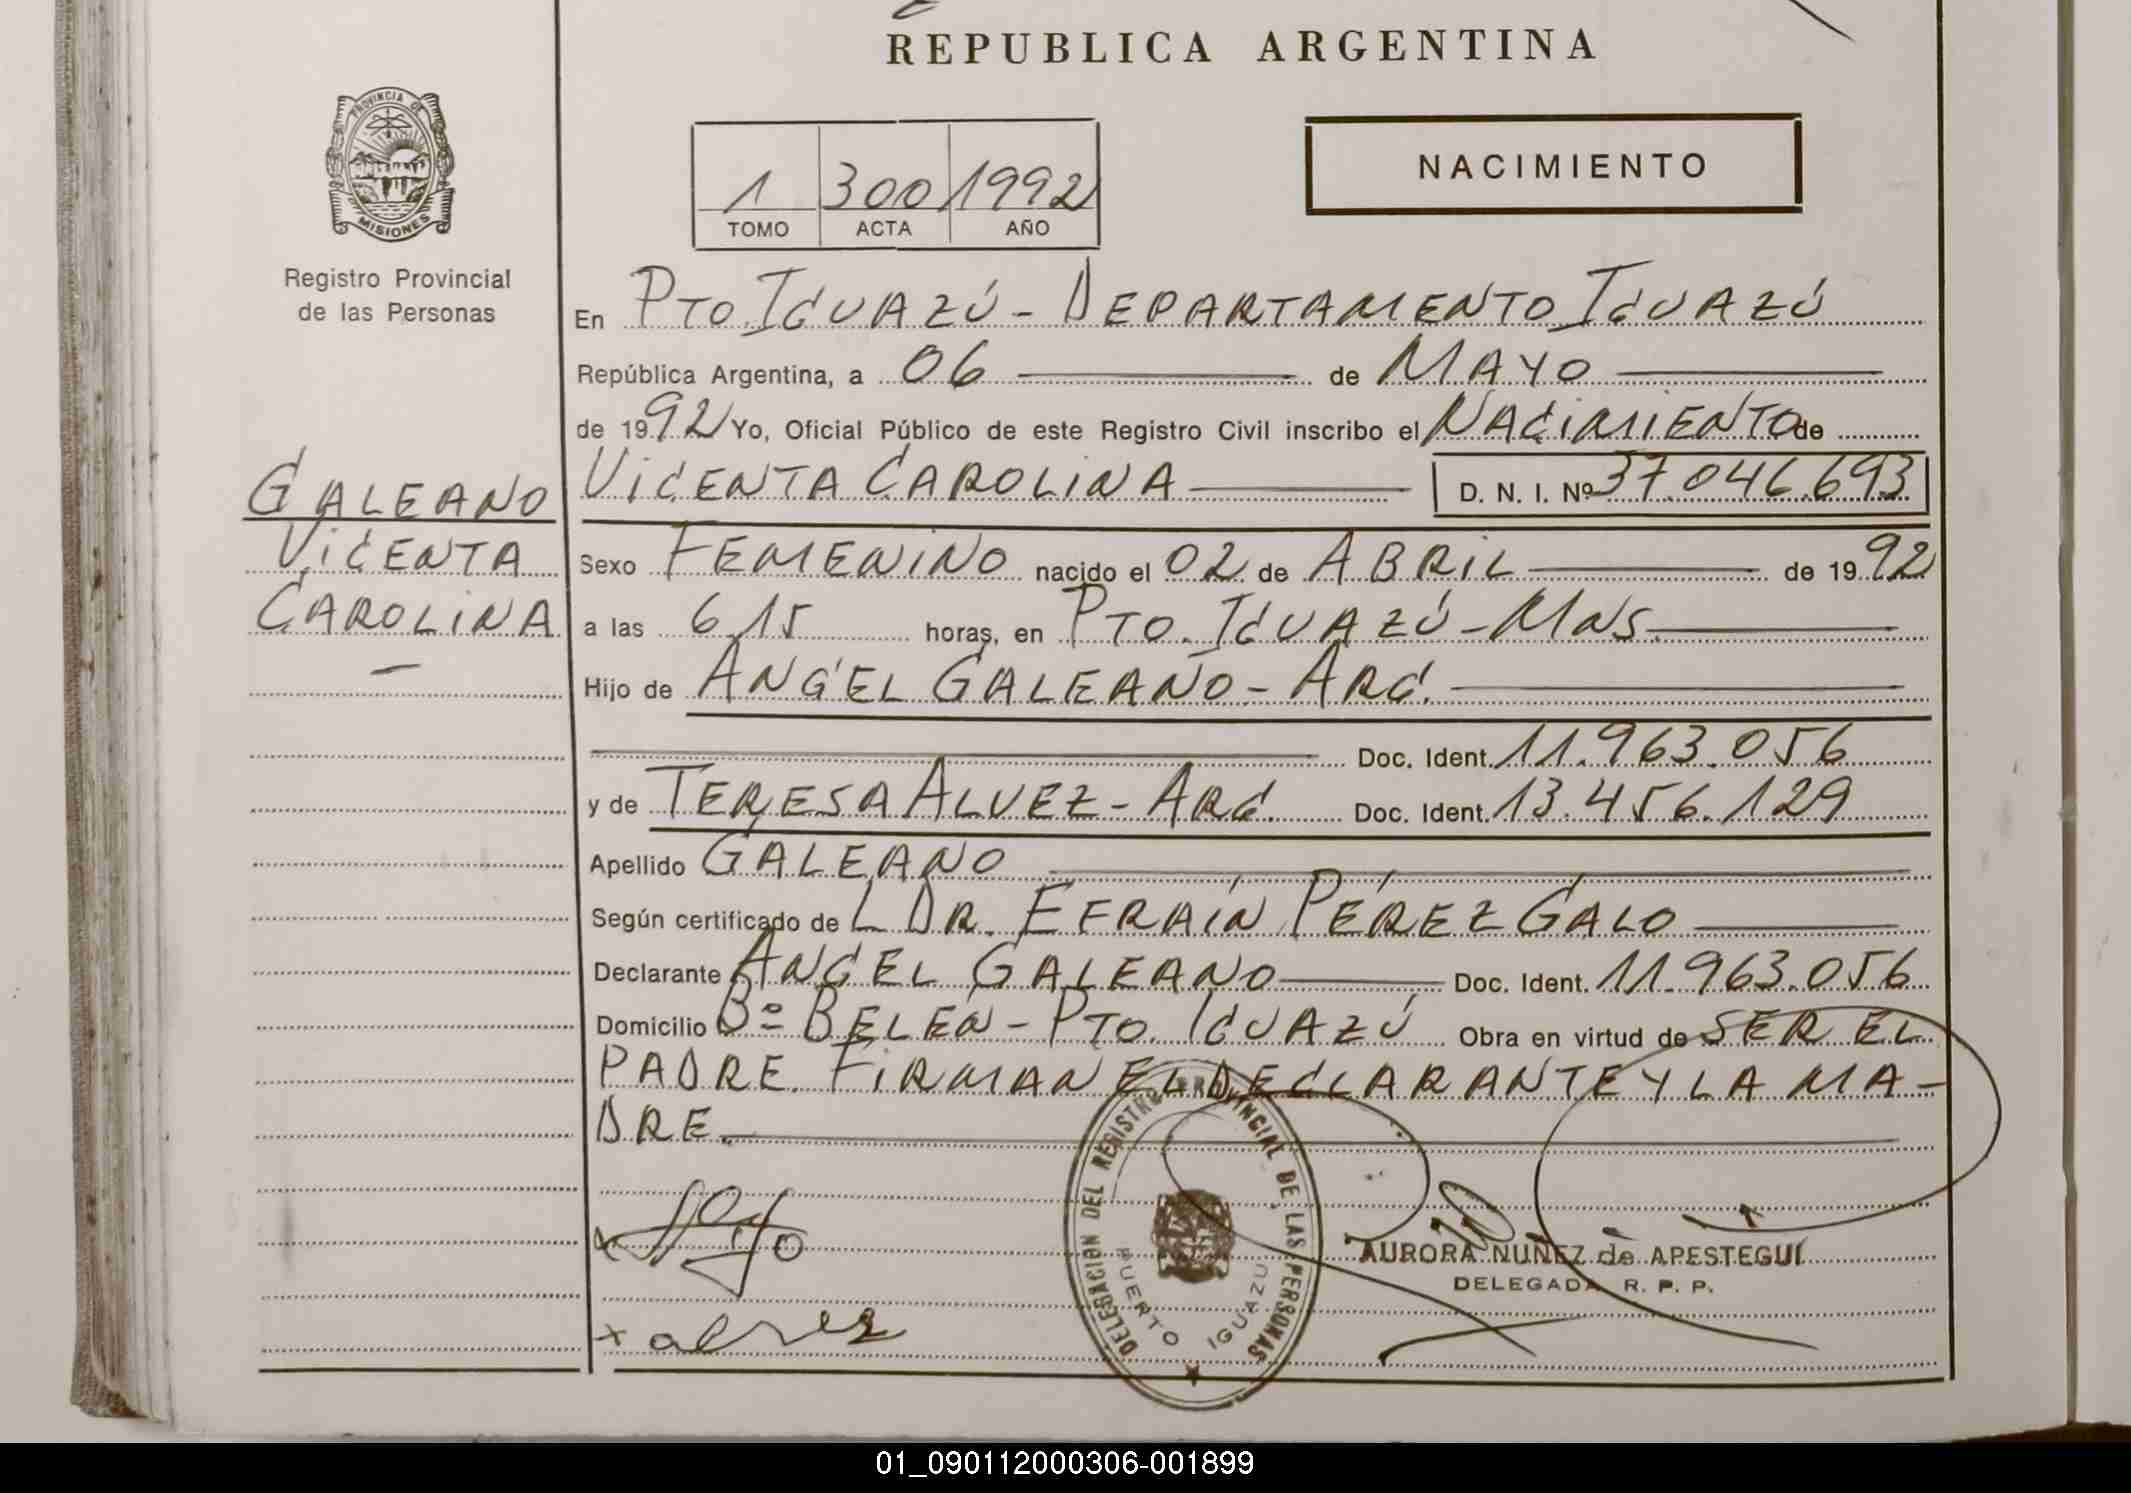 REPUBLICA ARGENTINA
PROVINCIA DE
MISIONES
Registro Provincial
de las Personas
1 300 1992
TOMO ACTA AÑO
NACIMIENTO
En PTO. IGUAZÚ - DEPARTAMENTO IGUAZÚ
República Argentina, a 06 de MAYO
de 1992 Yo, Oficial Público de este Registro Civil inscribo el NACIMIENTO de
GALEANO
VICENTA
CAROLINA
VICENTA CAROLINA D. N. I. Nº 37.046.693
Sexo FEMENINO nacido el 02 de ABRIL de 1992
a las 6,15 horas, en PTO. IGUAZÚ - MNS.
Hijo de ANGEL GALEANO - ARG.
Doc. Ident. 11.963.056
y de TERESA ALVEZ - ARG. Doc. Ident. 13.456.129
Apellido GALEANO
Según certificado de L DR. EFRAÍN PÉREZ GALO
Declarante ANGEL GALEANO Doc. Ident. 11.963.056
Domicilio Bº BELÉN - PTO. IGUAZÚ Obra en virtud de SER EL
PADRE. FIRMAN EL DECLARANTE Y LA MA-
DRE.
DELEGACION DEL REGISTRO PROVINCIAL DE LAS PERSONAS
PUERTO IGUAZU
AURORA NUÑEZ de APESTEGUI
DELEGADA R. P. P.
x alvez
01_090112000306-001899